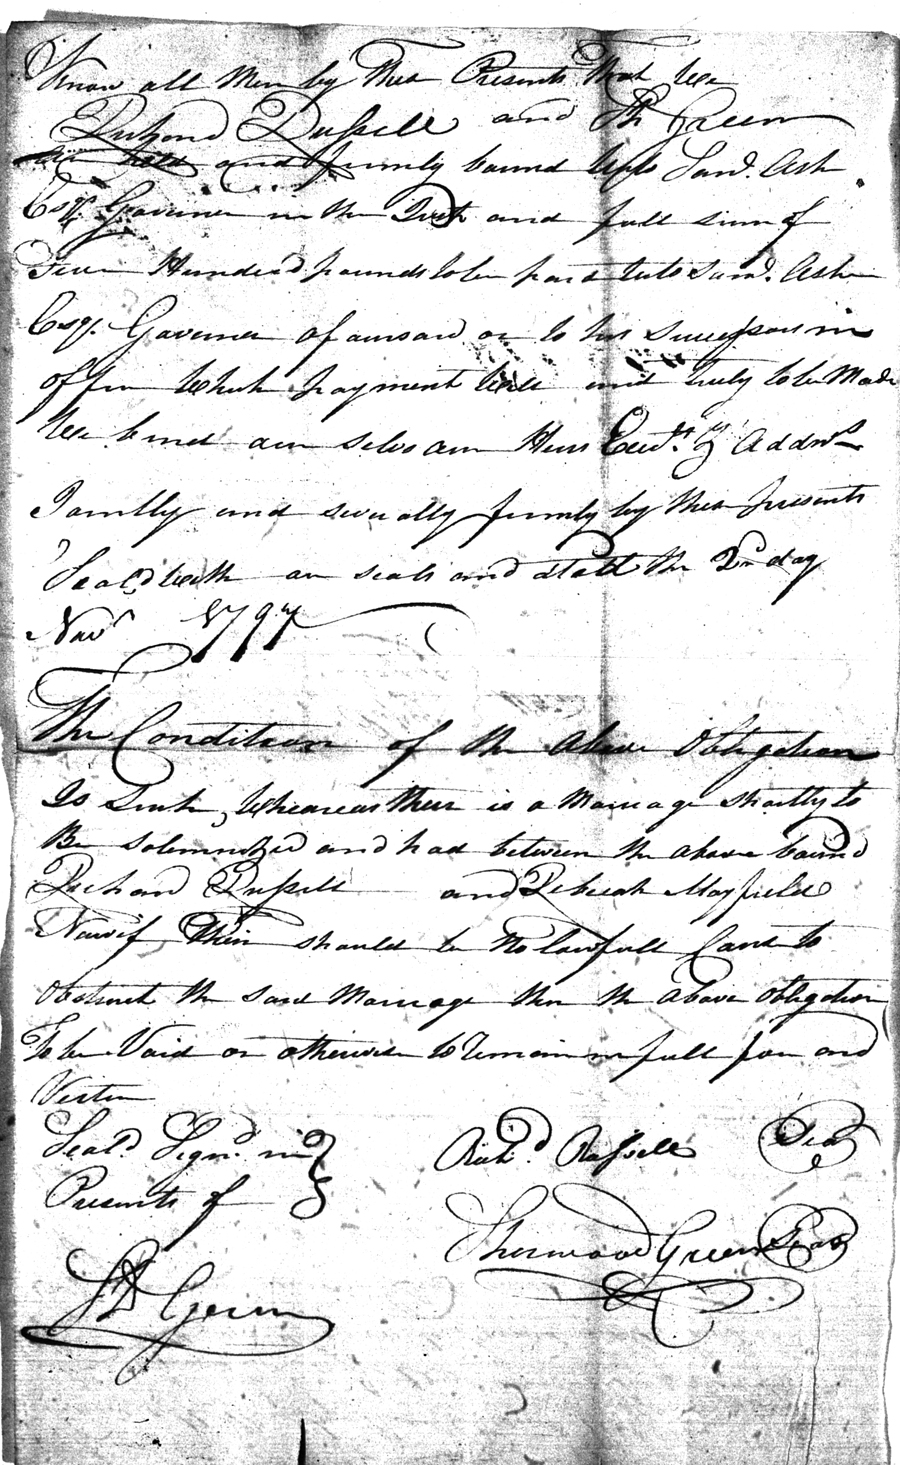 Know all Men by These Presents That We
Richard Russell and Sh Green
are held and firmly bound Unto Sam.l Ash
Esq.r Governer in the Just and full sum of
Five Hundred pounds to be paid unto Sam.l Ash
Esq.r Governer aforesaid or to his Successors in
office Which payment Well and truly to be Made
We bind our selves our Heirs Exec.rs & Addm.rs
Jointly and severally firmly by these presents
Seal.d with our seals and dated the 2nd day
Nov.r 1797
The Condition of the Above Obligation
Is Such, Wheareas there is a Marriage shortly to
Be solemnized and had between the above bound
Richard Russell and Rebecah Mayfield
Now if their should be No lawfull Caus to
Obstruct the said Marriage then the above obligation
To be Void or otherwise to Remain in full force and
Virtue
Seal.d Sign.d in
Presents of
Rich.d Russell Seal
Sherwood Green Seal
Green